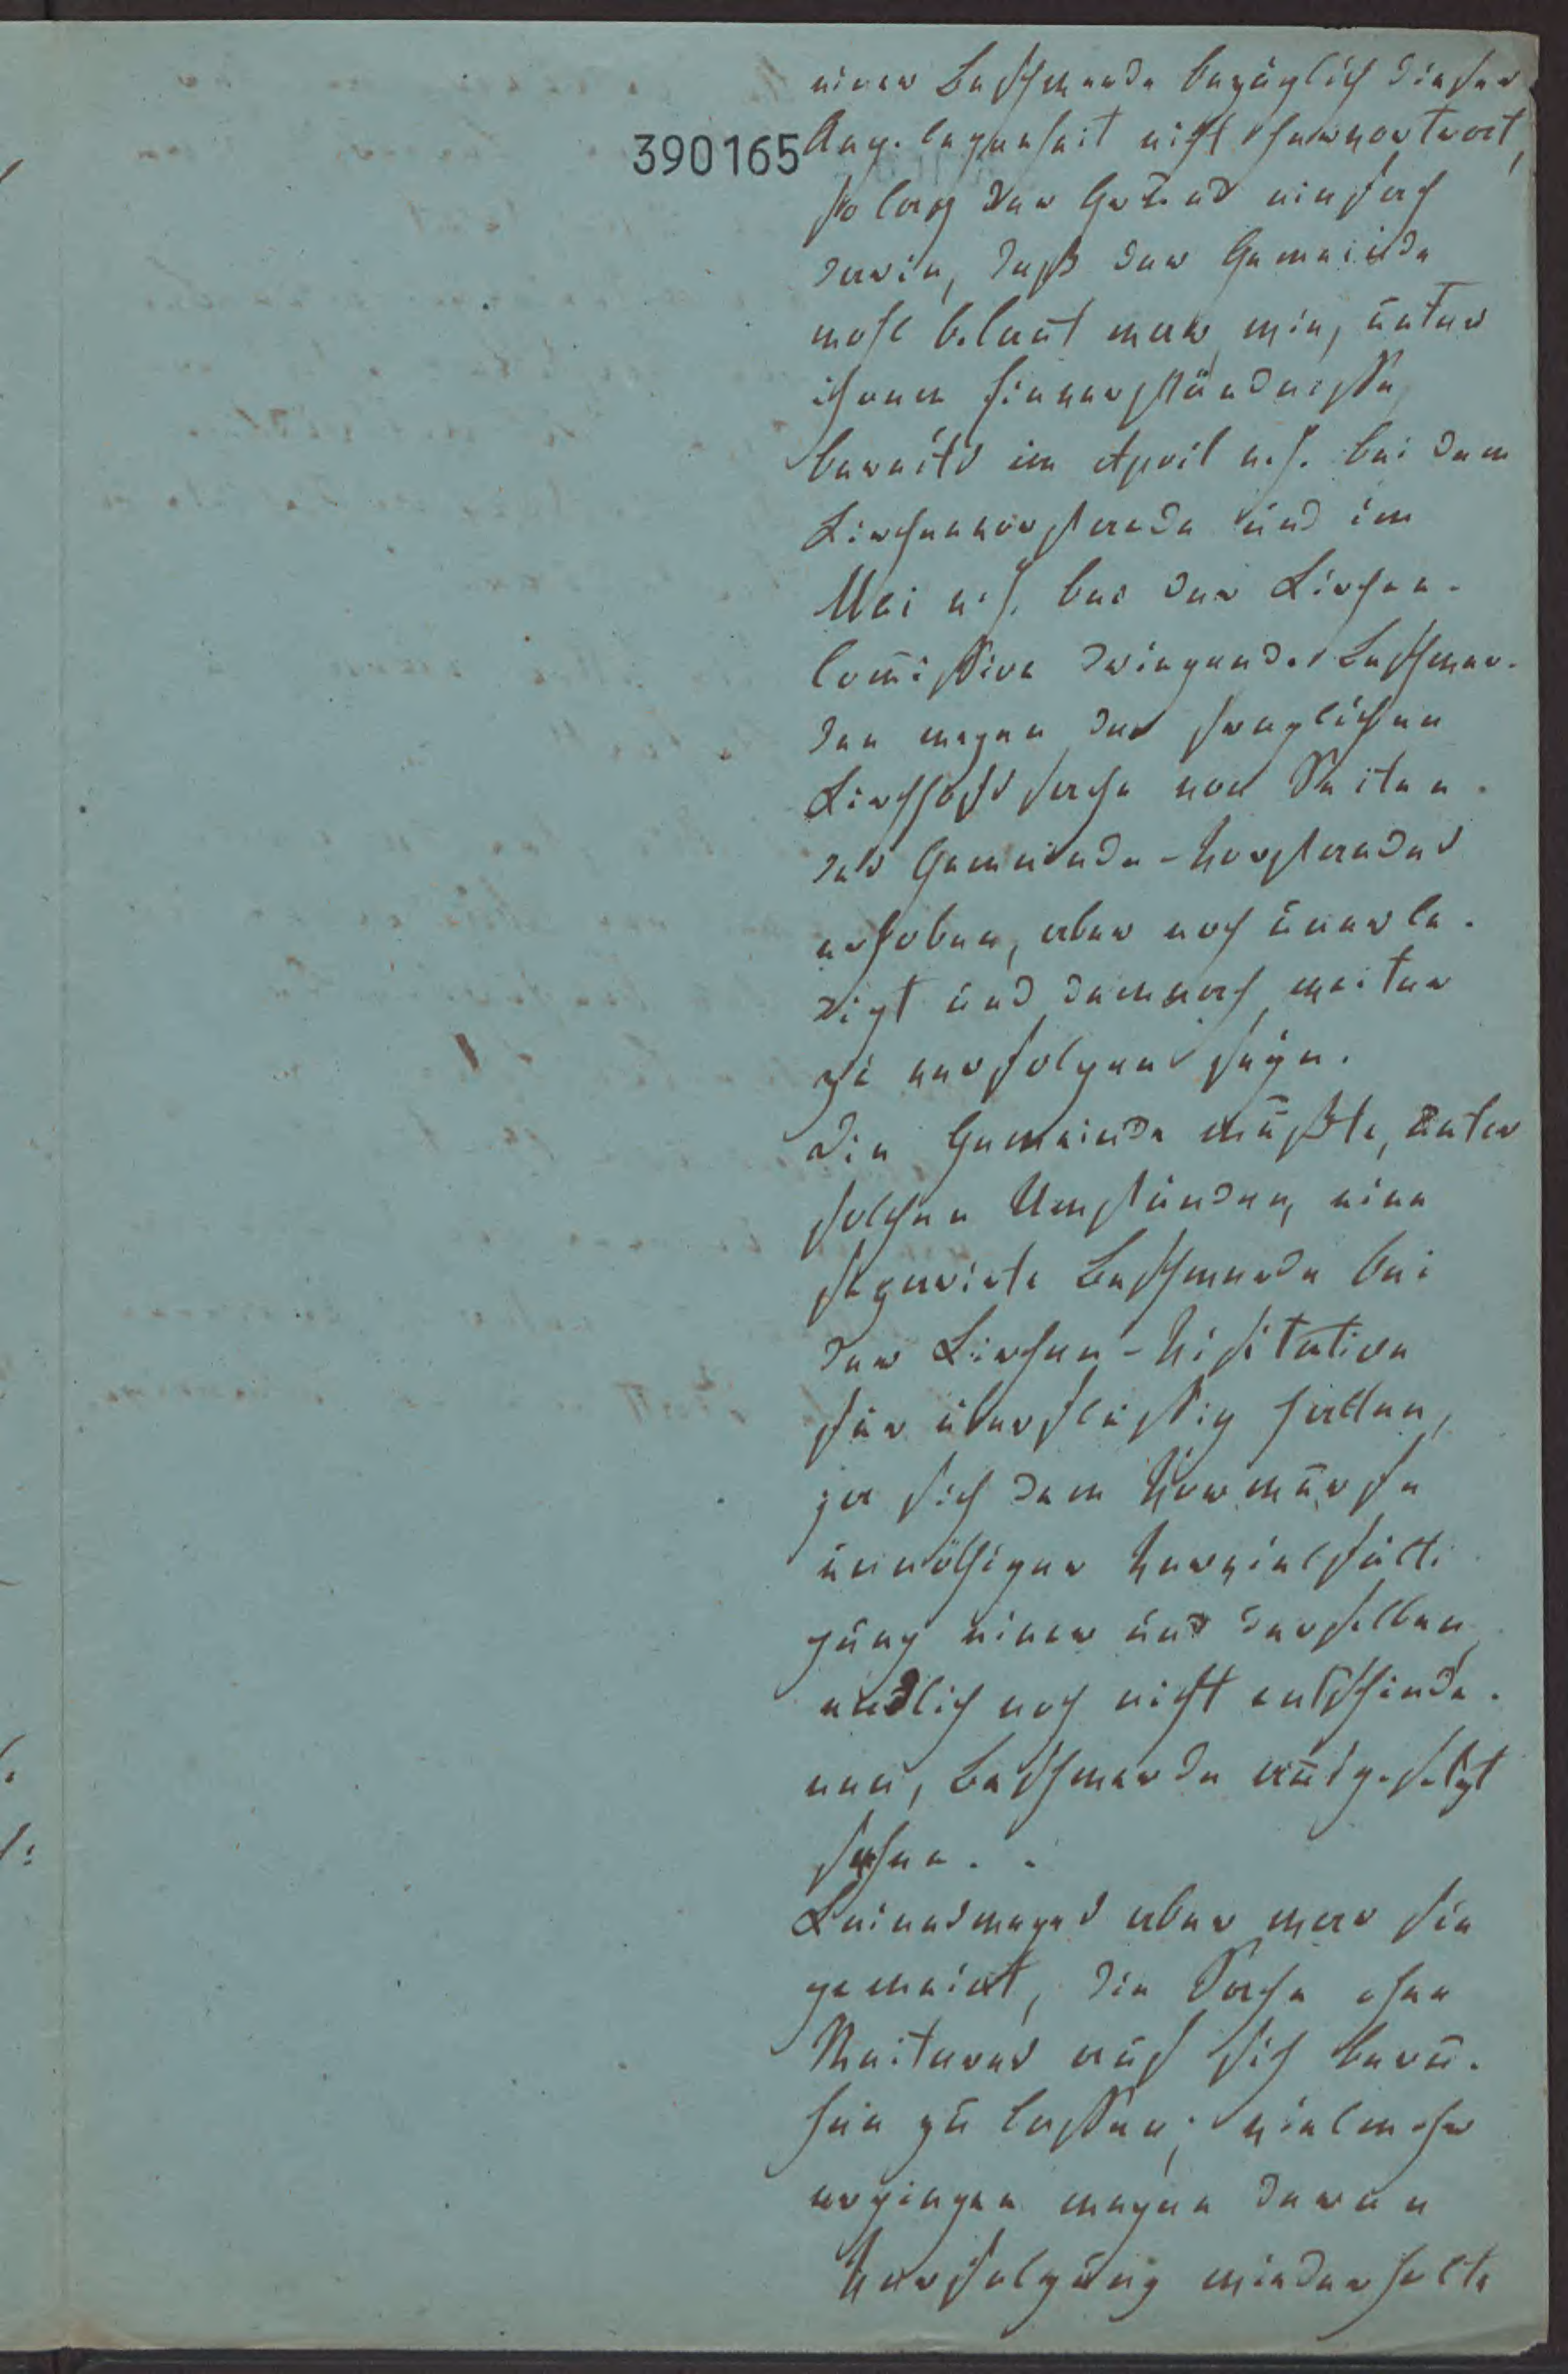 einer Beschwerde bezüglich dieser
390165
Ang.legenheit nicht hervortrat,
so lag der Grund einfach
darin, daß der Gemeinde
wohl bekant war, wie, unter
ihrem Einverständnisse,
bereits im April v. J. bei dem
Kirchenvorstande und im
Mai v. J. bei der Kirchen-
komission dringende Beschwer-
den wegen der fraglichen
Kirchhofssache von Seiten
des Gemeinde-Vorstandes
erhoben, aber noch unerle-
digt und demnach weiter
zu verfolgen seyn.
Die Gemeinde mußte, unter
solchen Umständen, eine
separirte Beschwerde bei
der Kirchen-Visitation
für überflüssig halten,
ja sich dem Vorwurfe
unnöthiger Vervielfälti
gung einer und derselben,
endlich noch nicht entschiede-
nen, Beschwerde ausgesetzt
sehen.
Keineswegs aber war sie
gemeint, die Sache ohne
Weiteres auf sich beru-
hen zu lassen; vielmehr
ergingen wegen deren
Verfolgung wiederholte